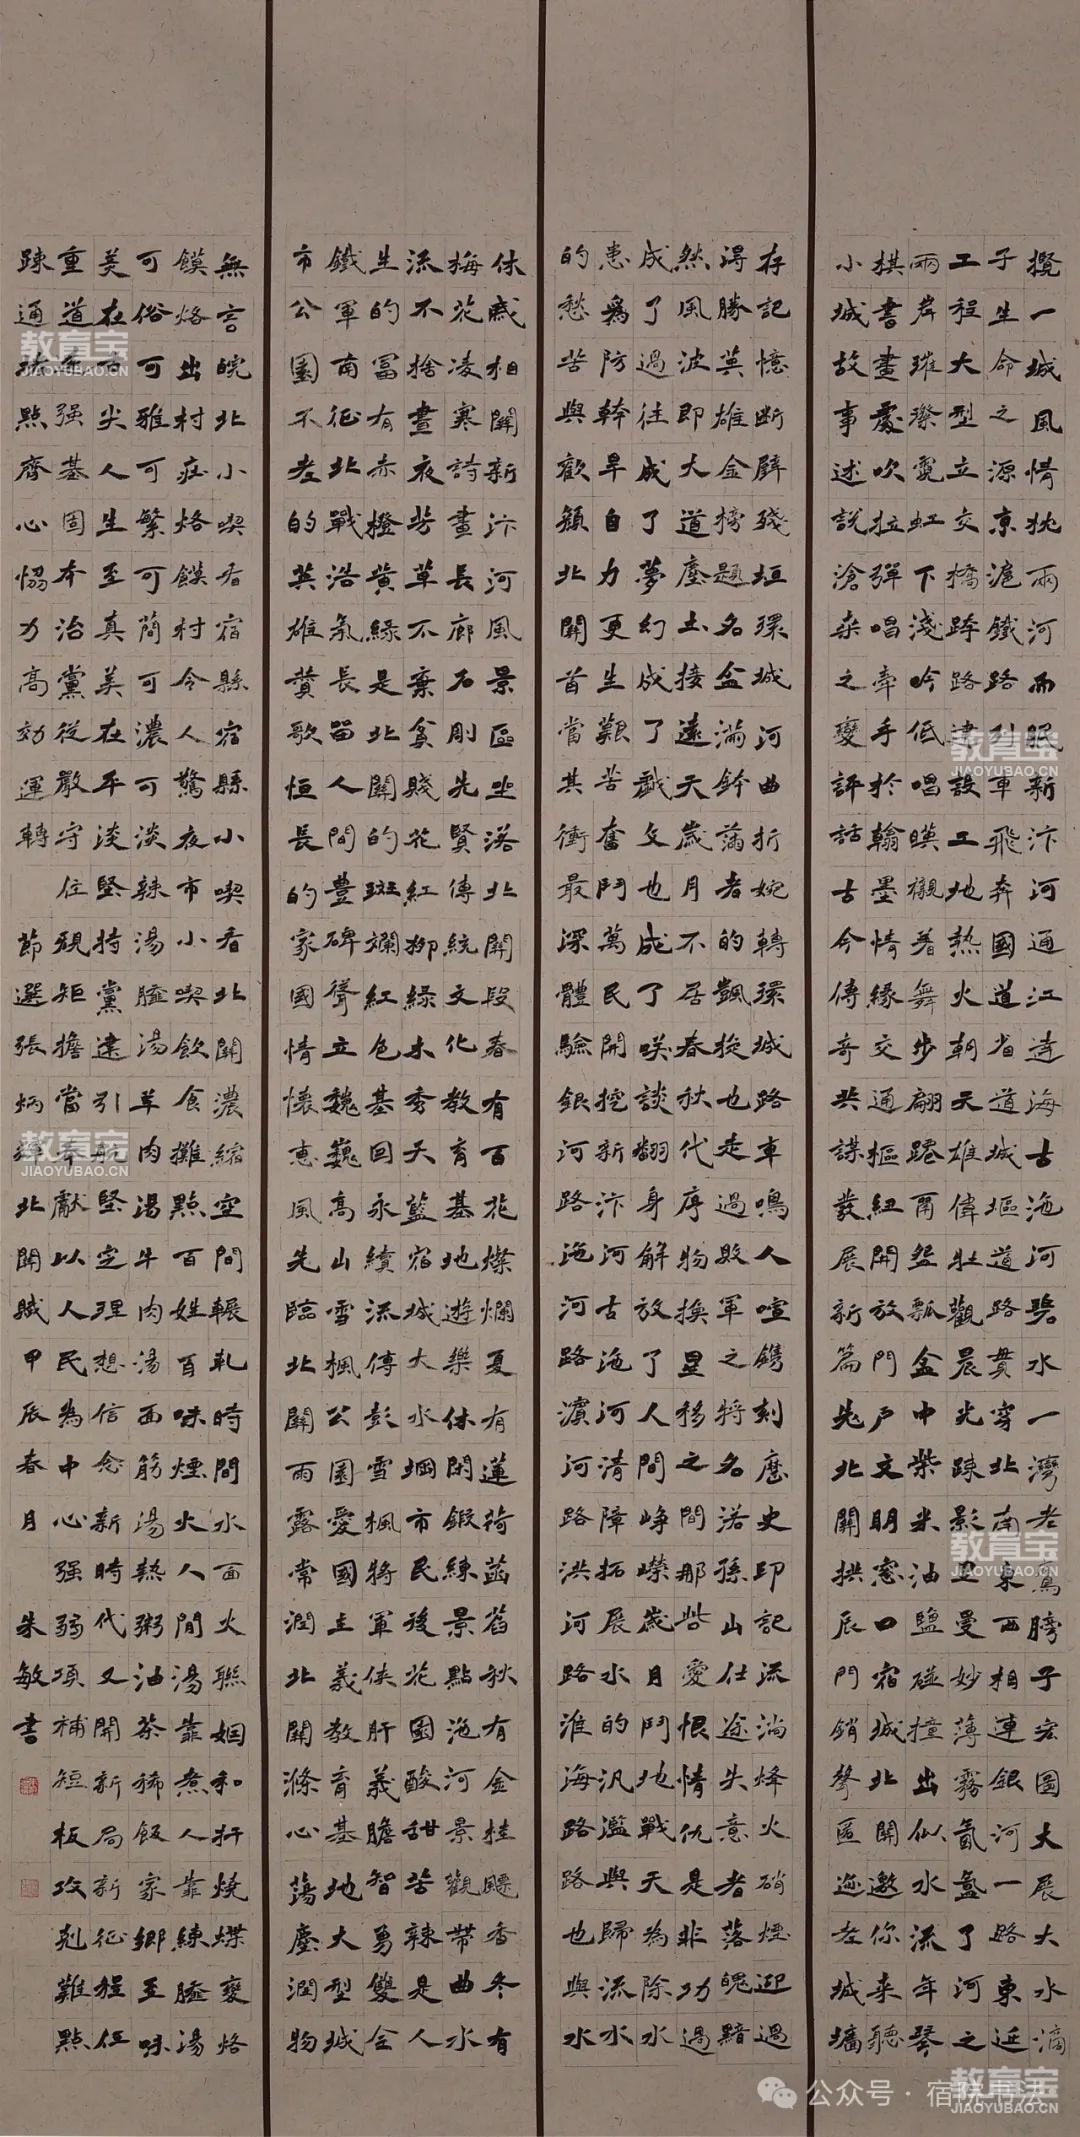 攬一城風情枕兩河而眠新汴河通江達海古沱河碧水一灣老鳶膀子宏圖大展大水滴
子生命之源京滬鐵路列車飛奔國道省道城區道路貫穿北南東西相連銀河一路東延
工程大型立交橋跨路建設工地熱火朝天雄偉壯觀晨光疎影曼妙薄霧氤氳了河之
兩岸璀璨霓虹下淺吟低唱暎襯著舞步翩躚瓢盆中柴米油鹽碰撞出似水流年琴
棋書畫處吹拉彈唱牽手於翰墨情緣交通樞紐開放門戶文明窓口宿城北關邀你來聽
小城故事述說滄桑之變評話古今傳奇共謀發展新篇先北關拱辰門銷聲匿迹老城壙
存記憶斷壁殘垣環城河曲折婉轉環城路車鳴人喧鐫刻歷史印記流淌烽火硝煙迎過
得勝英雄金榜題名盆滿鉢滿者的飄旋也走過敗軍之將名落孫山仕途失意者落魄黯
然風波即大道塵土接遠天歲月不居春秋代序物換星移之間那些愛恨情仇是非功過
成了過往成了夢幻成了戲文也成了咲談翻身解放了人間崢嶸歲月鬥地戰天為除水
患爲防幹旱自力更生艱苦奮鬥萬民開挖新汴河古沱河清障拓展水的汎濫與歸流水
的愁苦與歡顏北關首當其衝最深體驗銀河路沱河路濱河路洪河路淮海路路也與水
休戚相關新汴河風景區坐落北關段春有百花燦爛夏有蓮荷菡萏秋有金桂飄香冬有
梅花凌寒詩畫長廊石剛先賢傳統文化教育基地遊樂休閑鍛練景點沱河景觀帶曲水
流不捨晝夜芳草不棄貧賤花紅柳綠木秀天藍宿城大水堈市民後花園酸甜苦辣是人
生的富有赤橙黃緑是北關的斑斕紅色基因永續流傳彭雪楓將軍俠肝義膽智勇雙全
鐵軍南征北戰浩氣長留人間豐碑聳立巍巍高山雪楓公園愛國主義教育基地大型城
市公園不老的英雄贊歌恒長的家國情懷惠風先臨北關雨露常潤北關滌心蕩塵潤物
無言皖北小喫看宿縣宿縣小喫看北關濃縮空間輾軋時間水面火聯姻和打燒煤變烙
饃烙出村莊烙饃村令人驚夜市小喫飲食攤點百姓百味煙火人間湯靠煮人靠練湯
可俗可雅可繁可簡可濃可淡辣湯湯羊肉湯牛肉湯面筋湯熱粥油茶稀飯家鄉至味
美在舌尖人生至真美在平淡堅持黨建引航堅定理想信念新時代又開新局新征程任
重道遠强基固本治黨從嚴守住規矩擔當奉獻以人民為中心强弱項補短板攻剋難點
疎通堵點齊心協力高効運轉 節選張炳輝北關賦甲辰春月 朱敏書
教育宝
JIAOYUBAO.CN
教育宝
JIAOYUBAO.CN
教育宝
JIAOYUBAO.CN
教育宝
JIAOYUBAO.CN
教育宝
JIAOYUBAO.CN
公众号·宿院书法